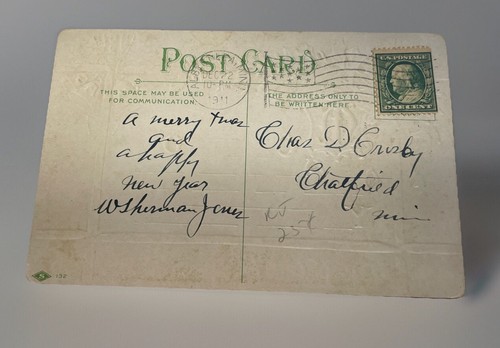 POST CARD
THIS SPACE MAY BE USED
FOR COMMUNICATION.
DEC 22
1911
THE ADDRESS ONLY TO
BE WRITTEN HERE.
U.S. POSTAGE
ONE CENT
a merry Xmas
and
a happy
new year
W Sherman Jones
Chas D. Crosby
Chatfield
Minn
25¢
132